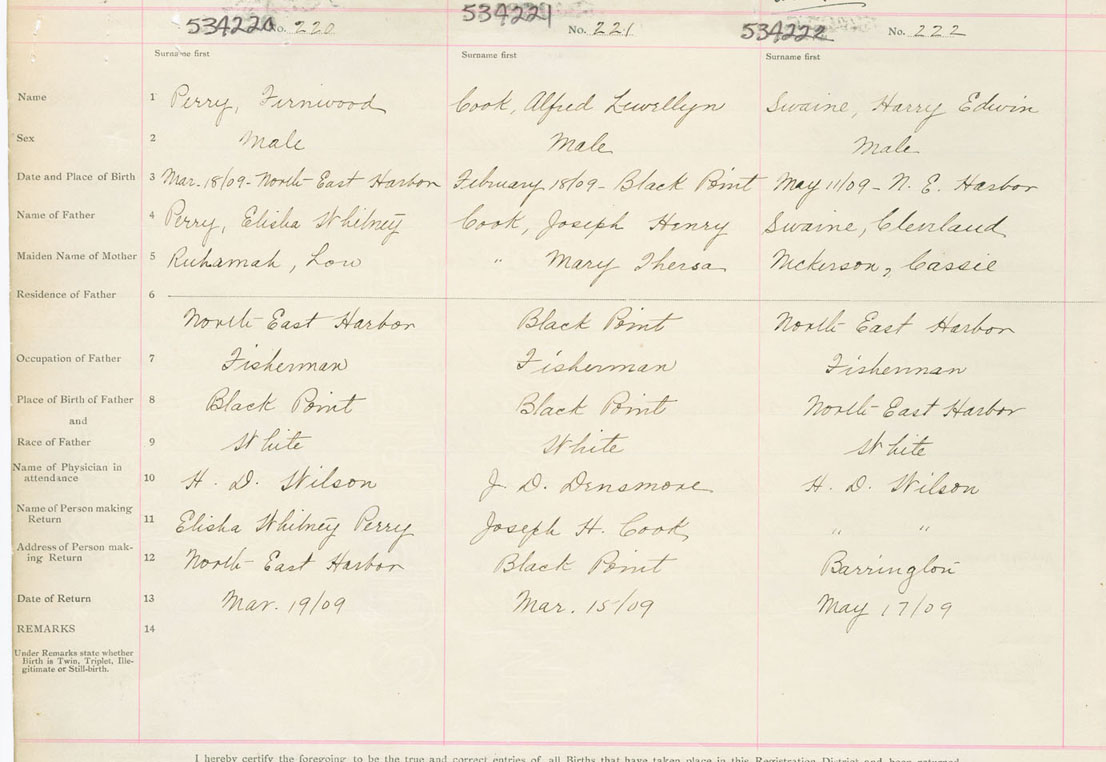 534220 No. 220 534221 No. 221 534222 No. 222
Surname first Surname first Surname first
Name 1 Perry, Firniwood Cook, Alfred Lewellyn Swaine, Harry Edwin
Sex 2 Male Male Male
Date and Place of Birth 3 Mar. 18/09 - North East Harbor February 18/09 - Black Point May 11/09 - N. E. Harbor
Name of Father 4 Perry, Elisha Whitney Cook, Joseph Henry Swaine, Cleveland
Maiden Name of Mother 5 Ruhamah, Low " Mary Thersa Nickerson, Cassie
Residence of Father 6
North East Harbor Black Point North East Harbor
Occupation of Father 7 Fisherman Fisherman Fisherman
Place of Birth of Father 8 Black Point Black Point North East Harbor
and
Race of Father 9 White White White
Name of Physician in
attendance 10 H. D. Wilson J. D. Densmore H. D. Wilson
Name of Person making
Return 11 Elisha Whitney Perry Joseph H. Cook " "
Address of Person mak-
ing Return 12 North East Harbor Black Point Barrington
Date of Return 13 Mar. 19/09 Mar. 15/09 May 17/09
REMARKS 14
Under Remarks state whether
Birth is Twin, Triplet, Ille-
gitimate or Still-birth.
I hereby certify the foregoing to be the true and correct entries of all Births that have taken place in this Registration District and been returned